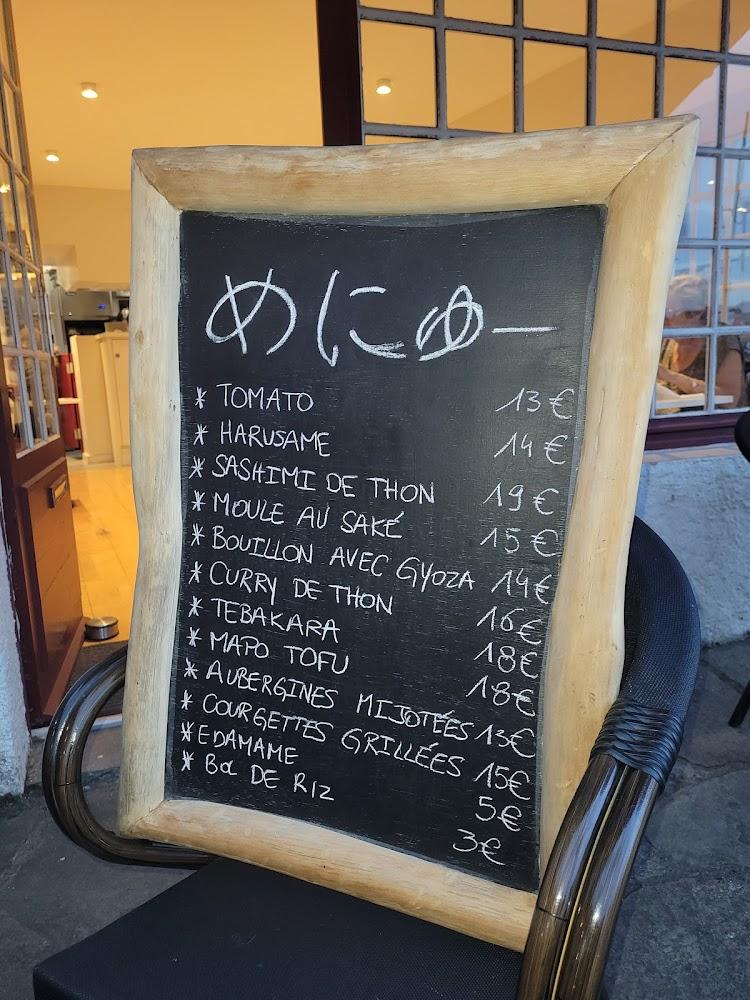 めにゅー
* TOMATO 13€
* HARUSAME 14€
* SASHIMI DE THON 19€
* MOULE AU SAKÉ 15€
* BOUILLON AVEC GYOZA 14€
* CURRY DE THON 16€
* TEBAKARA 18€
* MAPO TOFU 18€
* AUBERGINES MIJOTÉES 13€
* COURGETTES GRILLÉES 15€
* EDAMAME 5€
* BOL DE RIZ 3€